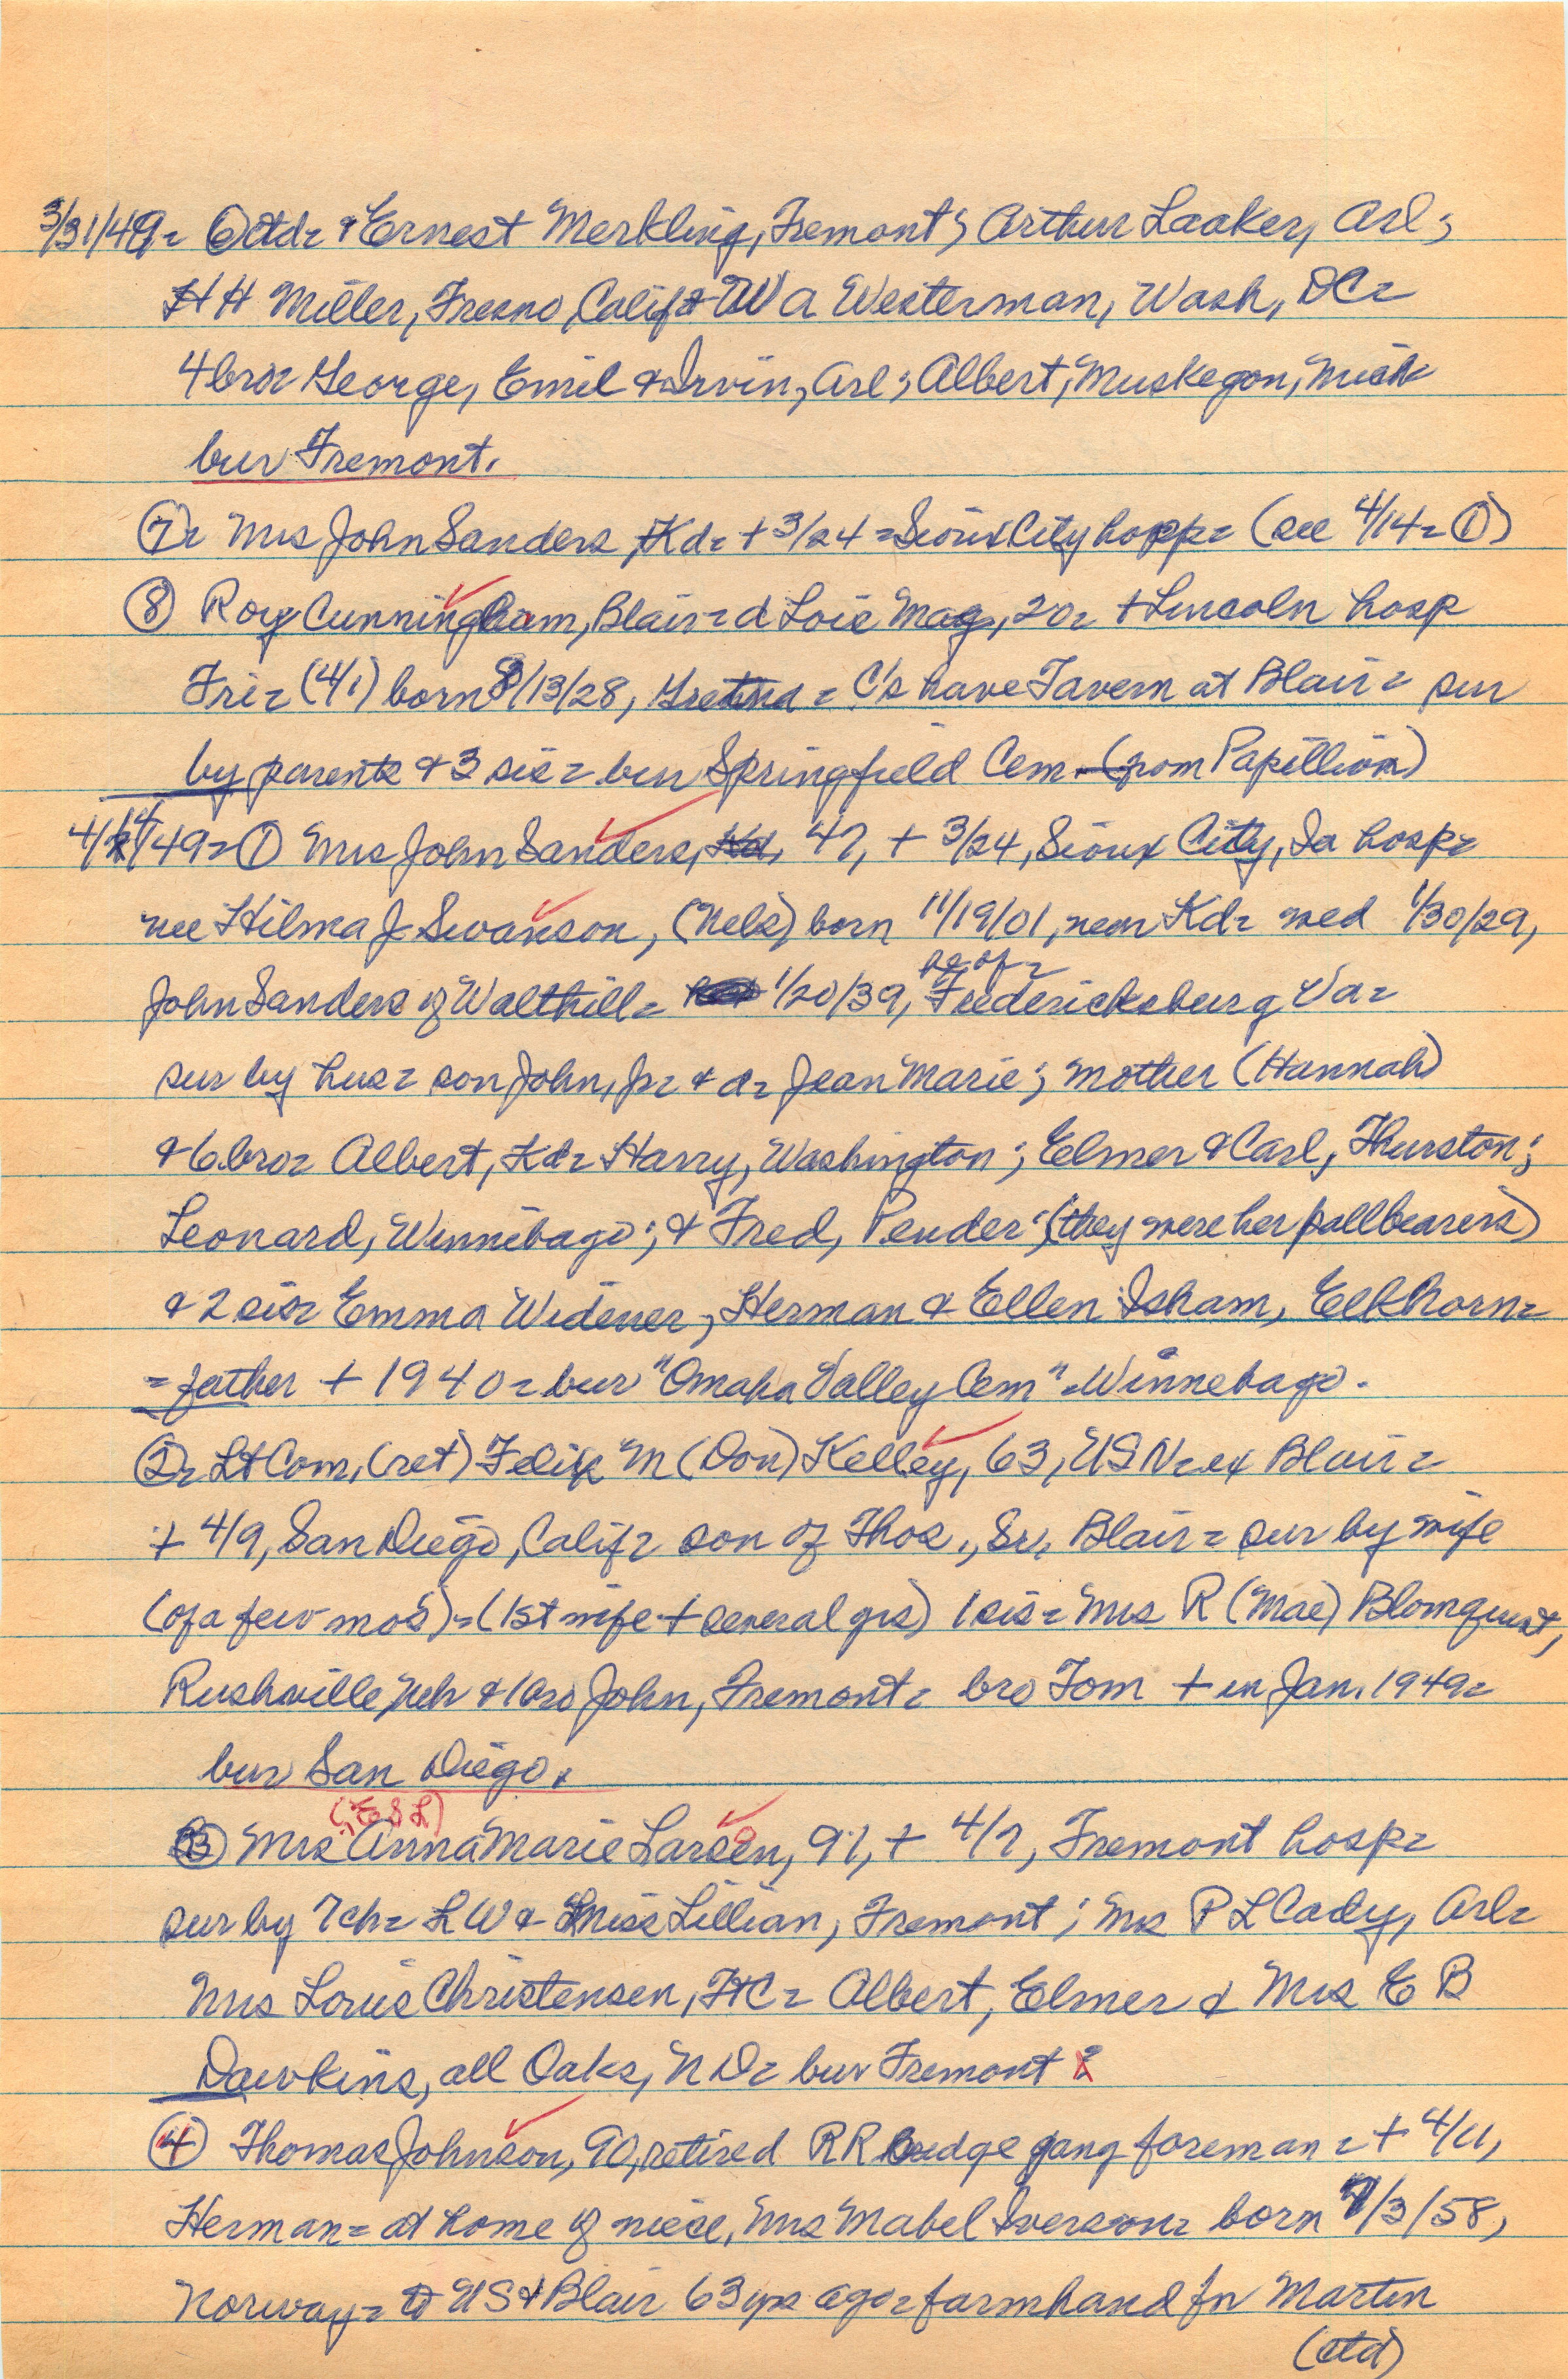 3/31/49= ⑥ctd= & Ernest Merkling, Fremont; Arthur Laaker, Arl;
H H Miller, Fresno, Calif & W A Westerman, Wash, DC=
4 bro= George, Emil & Irvin, Arl; Albert, Muskegon, Mich=
bur Fremont.
⑦= Mrs John Sanders, Kd= + 3/24 = Sioux City hosp= (see 4/14= ①)
⑧ Roy Cunningham, Blair= d Lois Mae, 20= + Lincoln hosp
Fri= (4/1) born 8/13/28, Gretna = C's have Tavern at Blair= sur
by parents & 3 sis= bur Springfield Cem. (from Papillion)
4/14/49= ① Mrs John Sanders, Kd, 47, + 3/24, Sioux City, Ia hosp=
nee Hilma J Swanson, (Nels) born 11/19/01, near Kd= wed 1/30/29,
John Sanders of Walthill= 1/20/39, Fredericksburg Va=
sur by hus= son John, Jr= & d= Jean Marie; mother (Hannah)
& 6 bro= Albert, Kd= Harry, Washington; Elmer & Carl, Thurston;
Leonard, Winnebago; & Fred, Pender; (they were her pallbearers)
& 2 sis= Emma Widener, Herman & Ellen Isham, Elkhorn=
= father + 1940= bur "Omaha Valley Cem"= Winnebago.
②= Lt Com, (ret) Felix M (Don) Kelley, 63, USN= ex Blair=
+ 4/9, San Diego, Calif= son of Thos., Sr, Blair= sur by wife
(of a few mos)= (1st wife + several yrs) 1 sis= Mrs R (Mae) Blomquist,
Rushville Neb & 1 bro John, Fremont= bro Tom + in Jan. 1949=
bur San Diego.
(, E S L)
③ Mrs Anna Marie Larsen, 91, + 4/7, Fremont hosp=
sur by 7 ch= L W & Miss Lillian, Fremont; Mrs P L Cady, Arl=
Mrs Louis Christensen, FtC= Albert, Elmer & Mrs E B
Dawkins, all Oaks, N D= bur Fremont ?
④ Thomas Johnson, 90, retired RR bridge gang foreman= + 4/11,
Herman= at home of niece, Mrs Mabel Iverson= born 7/3/58,
Norway= to US & Blair 63 yrs ago= farmhand for Martin
(ctd)